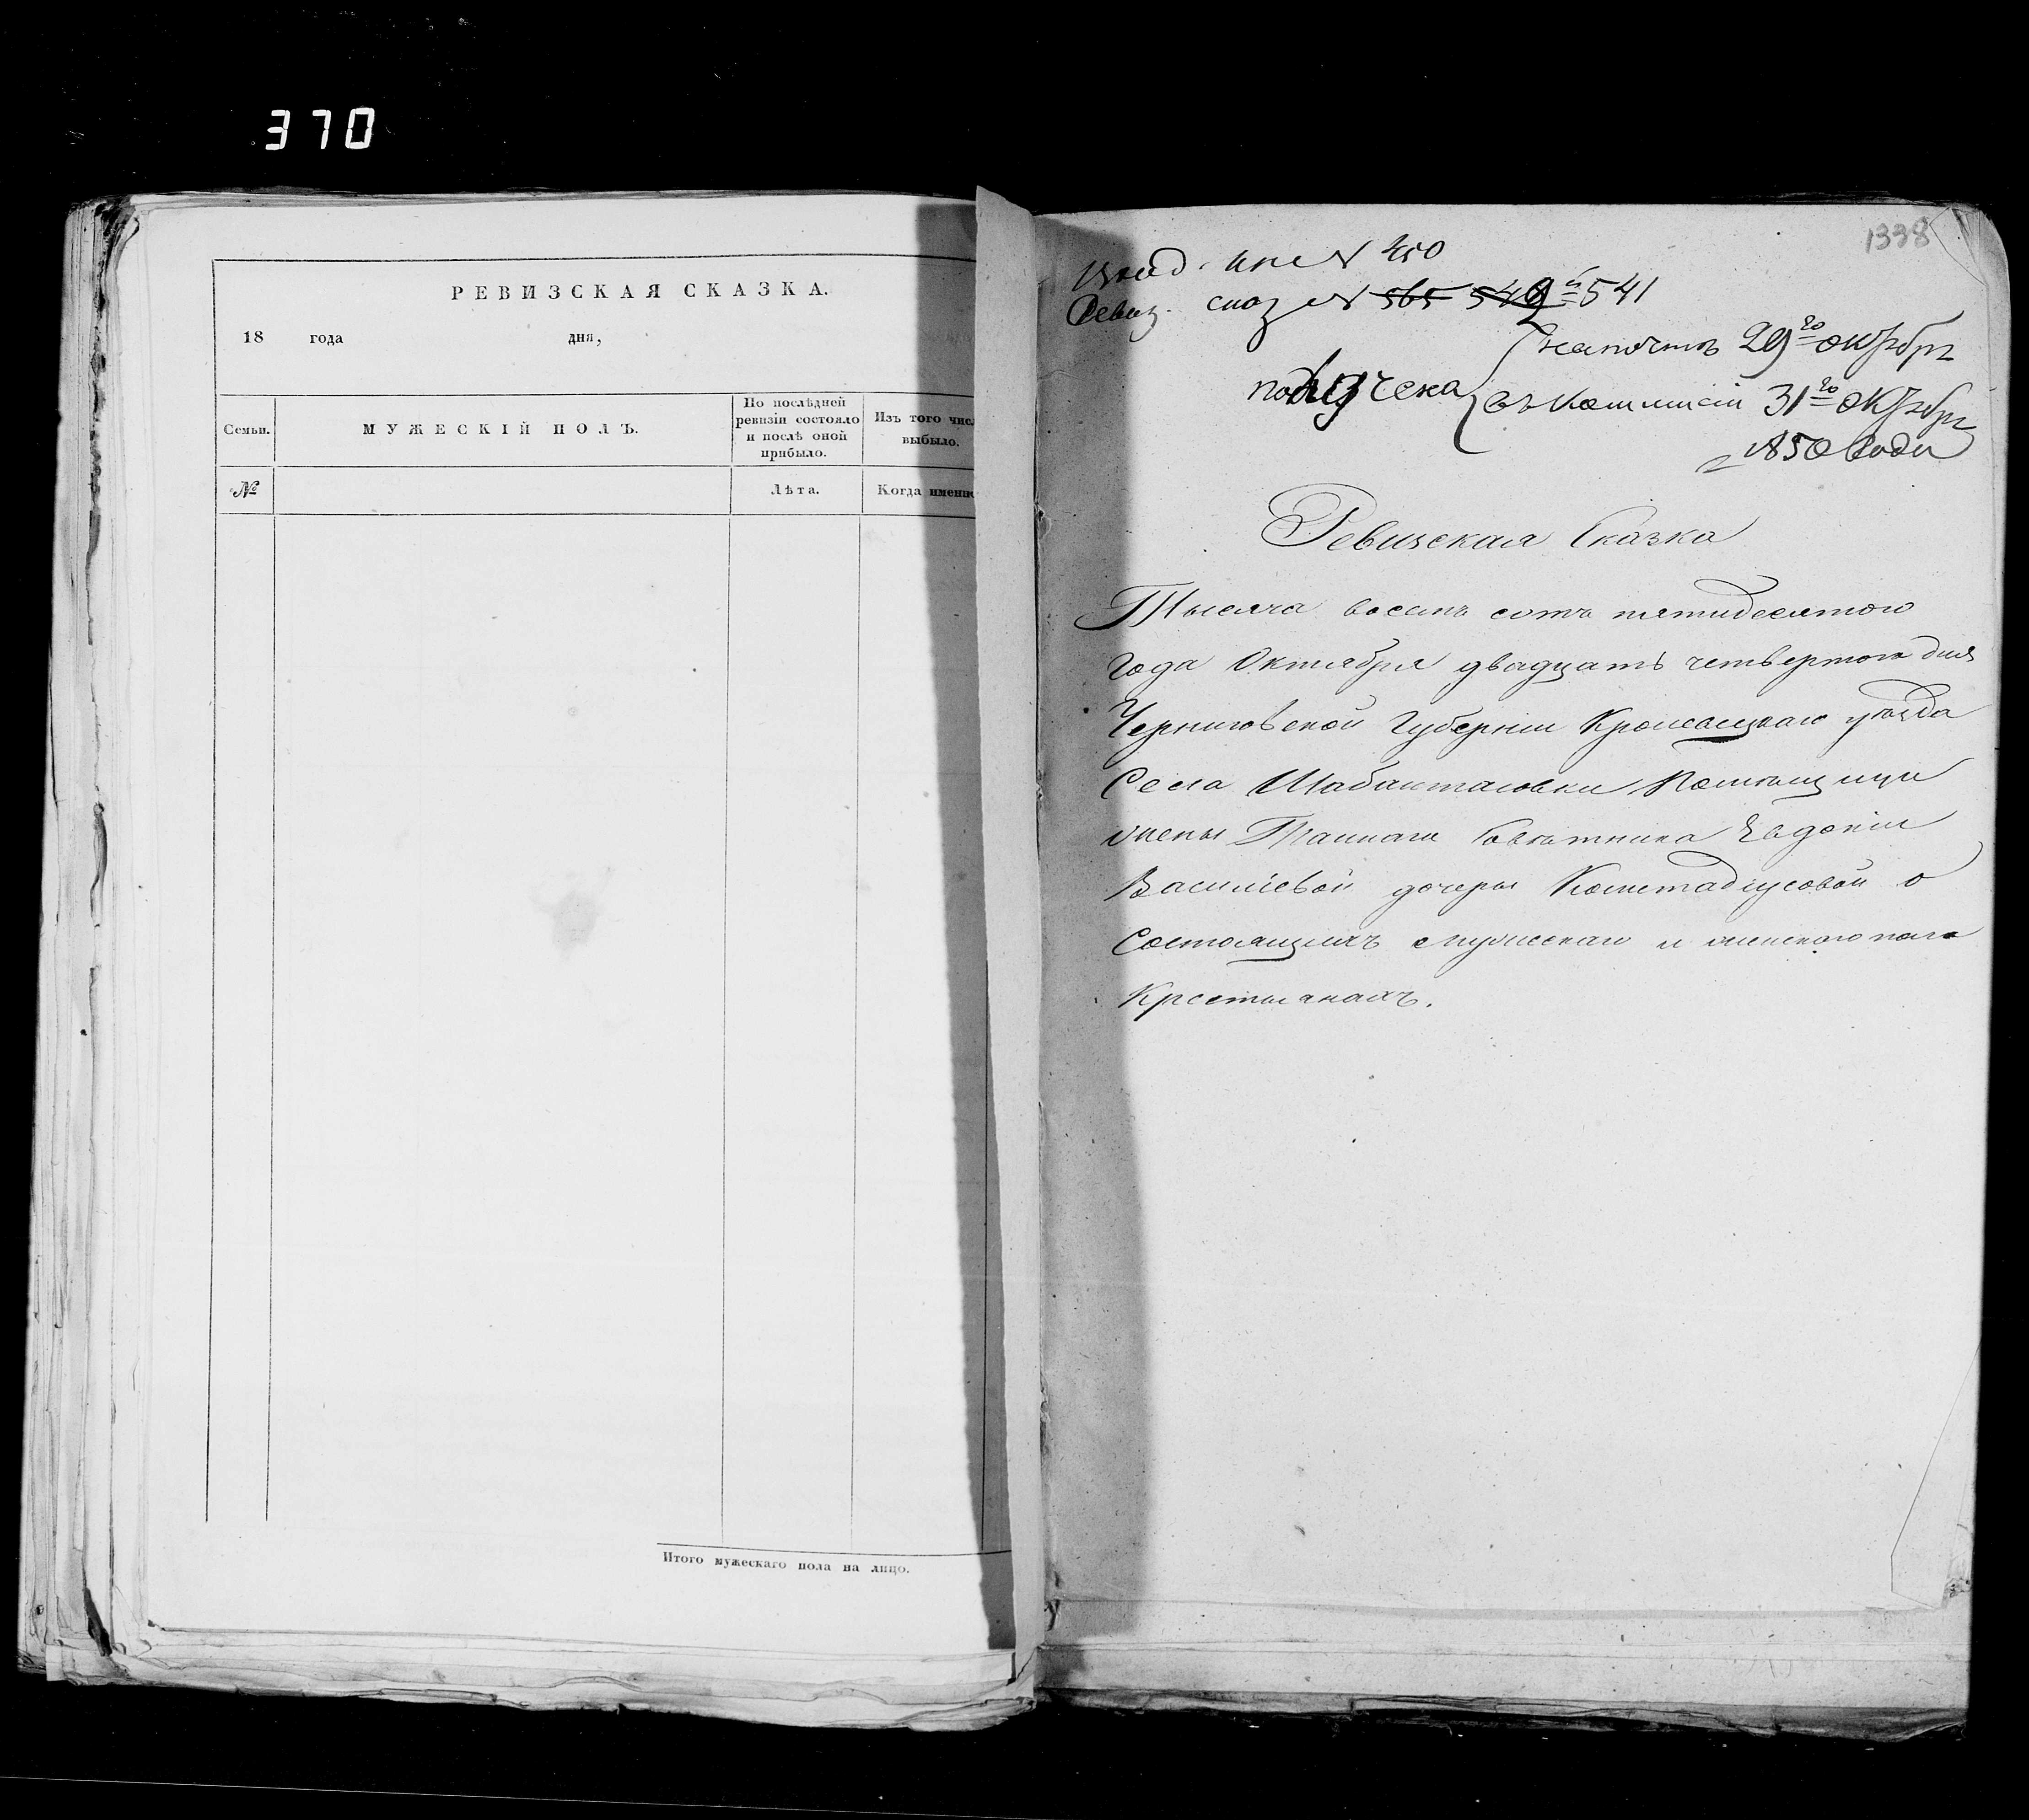 370
РЕВИЗСКАЯ СКАЗКА.
18 года дня,
Семьи.
МУЖЕСКІЙ ПОЛЪ.
По послѣдней
ревизіи состояло
и послѣ оной
прибыло.
Изъ того числ
выбыло.
№
Лѣта.
Когда именно
Итого мужескаго пола на лицо.
1338
№ 450
Ревиз. сказ № 565 549 541
получена
на почтѣ 29го октября
въ коммисіи 31го октября
1850 года
Ревизская Сказка
Тысяча восемь сотъ пятидесятого
года Октября двадцать четвертого дня
Черниговской Губерніи Кролевецкаго уѣзда
Села Шабалтасовки Помѣщицы
жены Тайнаго Совѣтника Евдокіи
Василіевой дочеры Комстадіусовой о
Состоящихъ мужескаго и женского пола
Крестьянахъ.